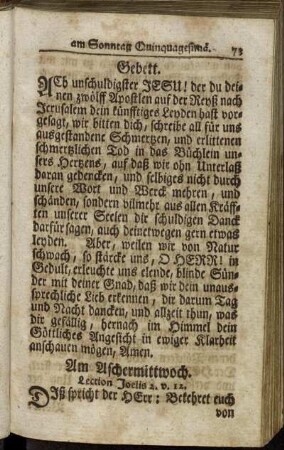 am Sonntag Quinquagesimæ. 73
Gebett.
ACh unschuldigster JESU! der du dei-
nen zwölff Apostlen auf der Reyß nach
Jerusalem dein künfftiges Leyden hast vor-
gesagt, wir bitten dich, schreibe all für uns
ausgestandene Schmertzen, und erlittenen
schmertzlichen Tod in das Büchlein un-
sers Hertzens, auf daß wir ohn Unterlaß
daran gedencken, und selbiges nicht durch
unsere Wort und Werck mehren, und
schänden, sondern vilmehr aus allen Kräff-
ten unserer Seelen dir schuldigen Danck
darfür sagen, auch deinetwegen gern etwas
leyden. Aber, weilen wir von Natur
schwach, so stärcke uns, O HERR! in
Gedult, erleuchte uns elende, blinde Sün-
der mit deiner Gnad, daß wir dein unaus-
sprechliche Lieb erkennen, dir darum Tag
und Nacht dancken, und allzeit thun, was
dir gefällig, hernach im Himmel dein
Göttliches Angesicht in ewiger Klarheit
anschauen mögen, Amen.
Am Aschermittwoch.
Lection Joelis 2. v. 12.
DIß spricht der HErr: Bekehret euch
von